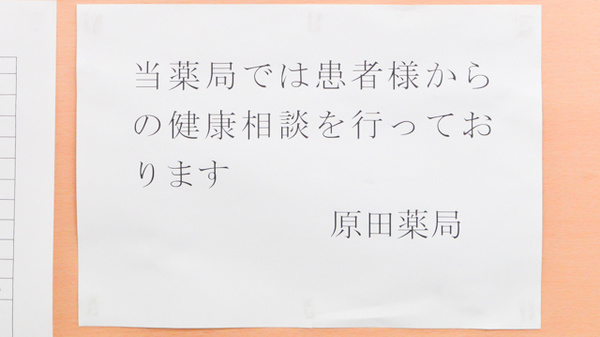 当薬局では患者様から
の健康相談を行ってお
ります
原田薬局